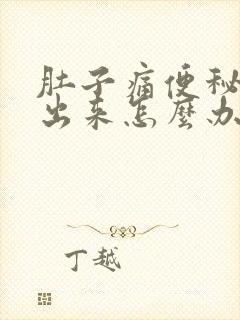 肚子痛便秘
出来怎麼办
丁越